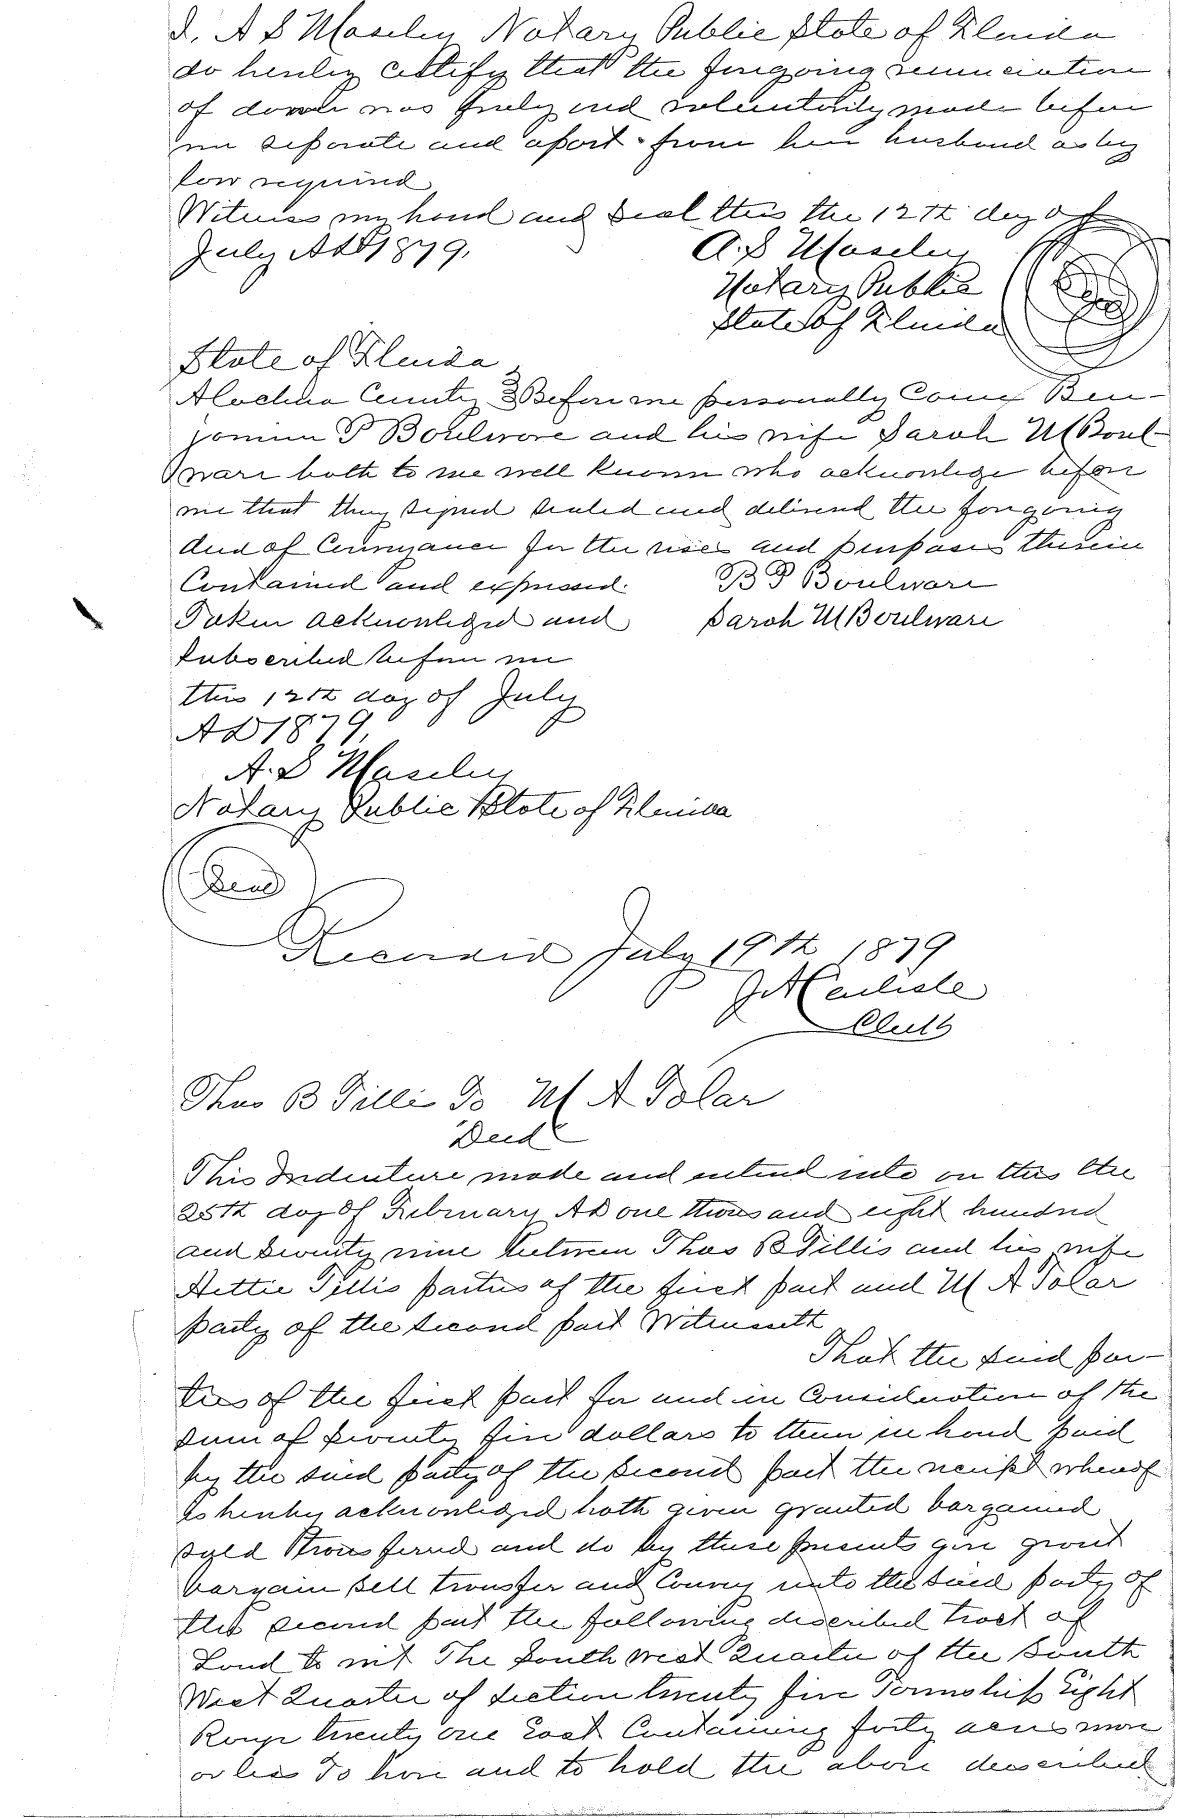 I, A S Moseley Notary Public State of Florida
do hereby certify that the foregoing renunciation
of dower was freely and voluntarily made before
me separate and apart from her husband as by
law required
Witness my hand and seal this the 12th day of
July AD 1879.
A. S Moseley
Notary Public
State of Florida
State of Florida
Alachua County } Before me personally Came Ben-
jamin P Boulware and his wife Sarah M Boul-
ware both to me well known who acknowlege before
me that they signed sealed and delivered the foregoing
deed of Conveyance for the uses and purposes therein
Contained and expressed.
B P Boulware
Taken acknowledged and
Sarah M Boulware
subscribed before me
this 12th day of July
AD 1879,
A. S Moseley
Notary Public State of Florida
Seal
Recorded July 19th 1879
J A Carlisle
Clerk
Thos B Tillis To M A Tolar
Deed
This Indenture made and entered into on this the
25th day of February AD one thousand eight hundred
and seventy nine between Thos B Tillis and his wife
Hettie Tillis parties of the first part and M A Tolar
party of the second part Witnesseth
That the said par-
ties of the first part for and in Consideration of the
sum of seventy five dollars to them in hand paid
by the said party of the second part the receipt whereof
is hereby acknowledged hath given granted bargained
sold transferred and do by these presents give grant
bargain sell transfer and Convey unto the said party of
the second part the following described tract of
Land to wit The South west Quarter of the South
West Quarter of section twenty five Township Eight
Range twenty one East Containing forty acres more
or less To have and to hold the above described